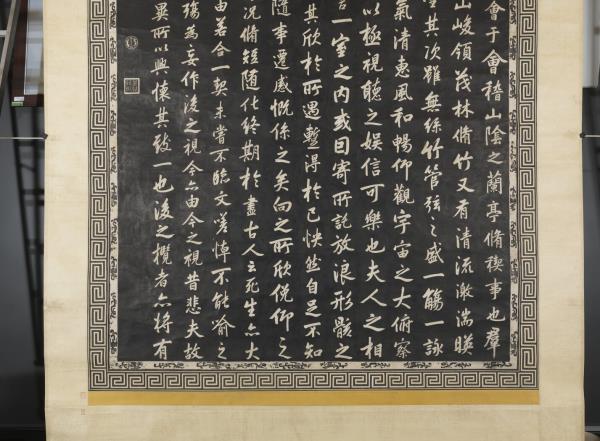 會于會稽山陰之蘭亭脩禊事也羣
山峻領茂林脩竹又有清流激湍暎
坐其次雖無絲竹管弦之盛一觴一詠
氣清惠風和暢仰觀宇宙之大俯察
以極視聽之娛信可樂也夫人之相
言一室之內或因寄所託放浪形骸之
其欣於所遇暫得於己怏然自足不知
隨事遷感慨係之矣向之所欣俛仰之
況脩短隨化終期於盡古人云死生亦大
由若合一契未嘗不臨文嗟悼不能喻之
殤為妄作後之視今亦由今之視昔悲夫故
異所以興懷其致一也後之攬者亦將有